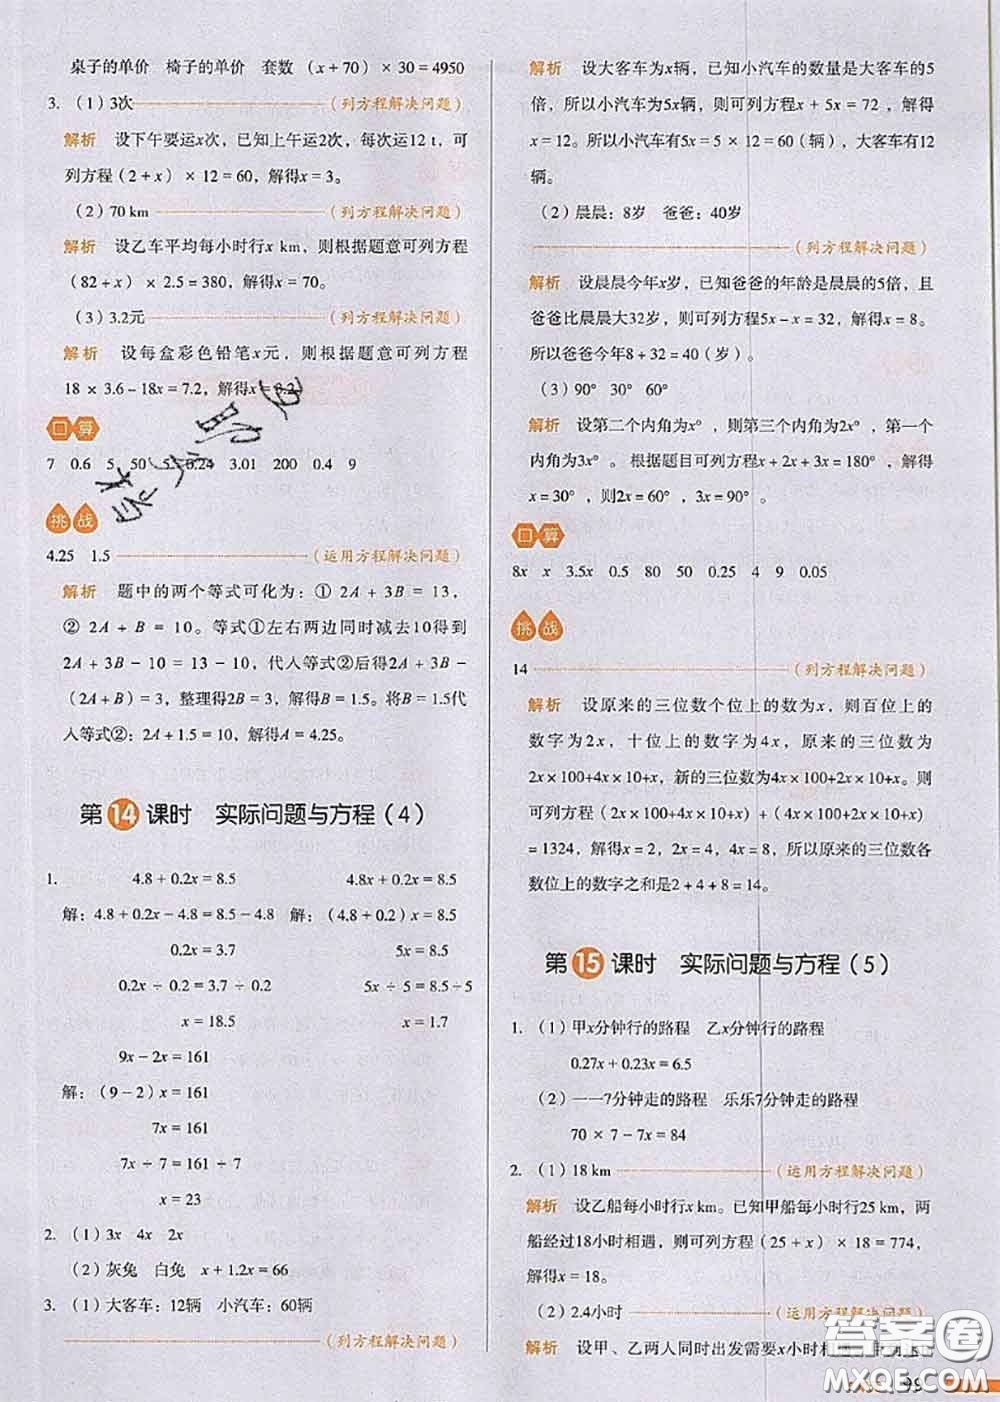 桌子的单价 椅子的单价 套数 (x+70)×30=4950
3. (1)3次 (列方程解决问题)
解析 设下午要运x次,已知上午运2次,每次运12 t,可
列方程(2+x)×12=60,解得x=3。
(2)70 km (列方程解决问题)
解析 设乙车平均每小时行x km,则根据题意可列方程
(82+x)×2.5=380,解得x=70。
(3)3.2元 (列方程解决问题)
解析 设每盒彩色铅笔x元,则根据题意可列方程
18×3.6-18x=7.2,解得x=3.2。
口算
7 0.6 5 50 5 0.24 3.01 200 0.4 9
挑战
4.25 1.5 (运用方程解决问题)
解析 题中的两个等式可化为:① 2A+3B=13,
② 2A+B=10。等式①左右两边同时减去10得到
2A+3B-10=13-10,代入等式②后得2A+3B-
(2A+B)=3,整理得2B=3,解得B=1.5。将B=1.5代
入等式②:2A+1.5=10,解得A=4.25。
第14课时 实际问题与方程(4)
1. 4.8+0.2x=8.5 4.8x+0.2x=8.5
解:4.8+0.2x-4.8=8.5-4.8 解:(4.8+0.2)x=8.5
0.2x=3.7 5x=8.5
0.2x÷0.2=3.7÷0.2 5x÷5=8.5÷5
x=18.5 x=1.7
9x-2x=161
解:(9-2)x=161
7x=161
7x÷7=161÷7
x=23
2. (1)3x 4x 2x
(2)灰兔 白兔 x+1.2x=66
3. (1)大客车:12辆 小汽车:60辆
(列方程解决问题)
解析 设大客车为x辆,已知小汽车的数量是大客车的5
倍,所以小汽车为5x辆,则可列方程x+5x=72,解得
x=12。所以小汽车有5x=5×12=60(辆),大客车有12
辆。
(2)晨晨:8岁 爸爸:40岁
(列方程解决问题)
解析 设晨晨今年x岁,已知爸爸的年龄是晨晨的5倍,且
爸爸比晨晨大32岁,则可列方程5x-x=32,解得x=8。
所以爸爸今年8+32=40(岁)。
(3)90° 30° 60°
解析 设第二个内角为x°,则第三个内角为2x°,第一个
内角为3x°。根据题目可列方程x+2x+3x=180°,解得
x=30°,则2x=60°,3x=90°。
口算
8x x 3.5x 0.5 80 50 0.25 4 9 0.05
挑战
14 (列方程解决问题)
解析 设原来的三位数个位上的数为x,则百位上的
数字为2x,十位上的数字为4x,原来的三位数为
2x×100+4x×10+x,新的三位数为4x×100+2x×10+x。则
可列方程(2x×100+4x×10+x)+(4x×100+2x×10+x)
=1324,解得x=2,2x=4,4x=8,所以原来的三位数各
数位上的数字之和是2+4+8=14。
第15课时 实际问题与方程(5)
1. (1)甲x分钟行的路程 乙x分钟行的路程
0.27x+0.23x=6.5
(2)一一7分钟走的路程 乐乐7分钟走的路程
70×7-7x=84
2. (1)18 km (运用方程解决问题)
解析 设乙船每小时行x km。已知甲船每小时行25 km,两
船经过18小时相遇,则可列方程(25+x)×18=774,
解得x=18。
(2)2.4小时 (运用方程解决问题)
解析 设甲、乙两人同时出发需要x小时相遇
答案圈
MXQE.COM
99